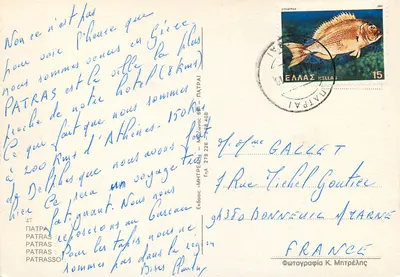 Non ce n'est pas
pour voir l'heure que
nous sommes venus en Grèce
PATRAS est la ville la plus
proche de notre hôtel (7 kms)
Ce qui fait que nous sommes
à 200 kms d'Athènes. 150 km
de Delphes que nous avons fait
hier Ce sera un voyage très
fatiguant. Nous nous
reposerons au bureau
Pour les tapis nous ne
sommes pas dans la région
Bises
ΠΑΤΡΑ
PATRAS
PATRAS
PATRAS
PATRASSO
ΠΑΤΡΑΙ
ΕΛΛΑΣ HELLAS 15
ΠΑΤΡΑΙ
M. Mme GALLET
7 Rue Michel Goutier
94380 BONNEUIL MARNE
FRANCE
Φωτογραφία Κ. Μητρέλης